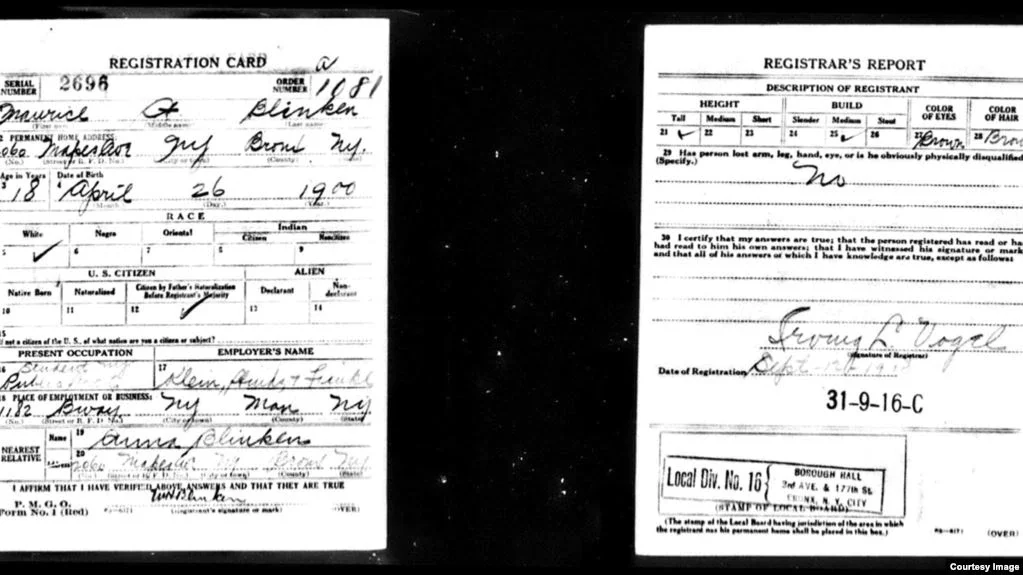 REGISTRATION CARD a
SERIAL NUMBER 2696 ORDER NUMBER 1081
Maurice H Blinken
(First name) (Middle name) (Last name)
2 PERMANENT HOME ADDRESS:
2060 Mapes Ave NY Bronx NY.
(No.) (Street or R. F. D. No.) (City or town) (County) (State)
Age in Years Date of Birth
3 18 4 April 26 1900
(Month) (Day) (Year)
RACE
White Negro Oriental Indian
Citizen Noncitizen
5 ✓ 6 7 8 9
U. S. CITIZEN ALIEN
Native Born Naturalized Citizen by Father's Naturalization Before Registrant's Majority Declarant Non-declarant
10 11 12 ✓ 13 14
15
If not a citizen of the U. S., of what nation are you a citizen or subject?
PRESENT OCCUPATION EMPLOYER'S NAME
16 Student NY 17
Public Klein,
18 PLACE OF EMPLOYMENT OR BUSINESS:
1182 Bway NY Man NY
(No.) (Street or R. F. D. No.) (City or town) (County) (State)
NEAREST RELATIVE Name 19 Anna Blinken
20 2060 Mapes Ave NY Bronx NY.
(No.) (Street or R. F. D. No.) (City or town) (County) (State)
I AFFIRM THAT I HAVE VERIFIED ABOVE ANSWERS AND THAT THEY ARE TRUE
P. M. G. O. MHBlinken
Form No. 1 (Red) (Registrant's signature or mark) (OVER)
REGISTRAR'S REPORT
DESCRIPTION OF REGISTRANT
HEIGHT BUILD COLOR OF EYES COLOR OF HAIR
Tall Medium Short Slender Medium Stout
21 ✓ 22 23 24 25 ✓ 26 27 Brown 28 Brow
29 Has person lost arm, leg, hand, eye, or is he obviously physically disqualified?
(Specify.) No
30 I certify that my answers are true; that the person registered has read or has
had read to him his own answers; that I have witnessed his signature or mark
and that all of his answers of which I have knowledge are true, except as follows:
Irving L Vogel
(Signature of Registrar)
Date of Registration Sept 12
31-9-16-C
Local Div. No. 16 { BOROUGH HALL
3rd AVE. & 177th St.
BRONX, N. Y. CITY
(STAMP OF LOCAL BOARD)
(The stamp of the Local Board having jurisdiction of the area in which
the registrant has his permanent home shall be placed in this box.)
(OVER)
Courtesy Image